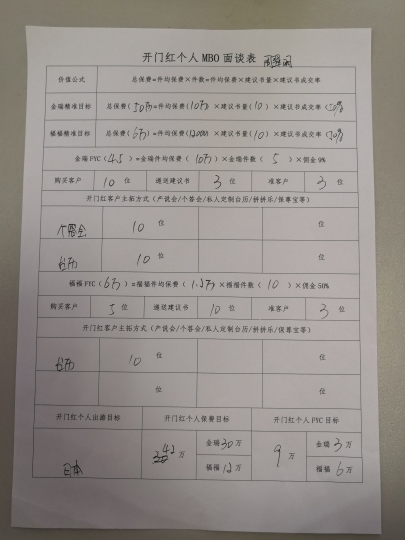 开门红个人 MBO 面谈表
价值公式 总保费=件均保费×件数=件均保费×建议书量×建议书成交率
金瑞精准目标 总保费(50万=件均保费(10万)×建议书量(10)×建议书成交率(50%
福福精准目标 总保费(6万)=件均保费(12000)×建议书量(10)×建议书成交率(70%
金瑞 FYC(4.5)=金瑞件均保费(10万)×金瑞件数(5)×佣金 9%
购买客户 10 位 递送建议书 3 位 准客户 3 位
开门红客户主拓方式(产说会/个答会/私人定制台历/拼拼乐/保尊宝等)
个答会 10 位 位
台历 10 位 位
福福 FYC(6万)=福福件均保费(1.2万)×福福件数(10)×佣金 50%
购买客户 5 位 递送建议书 10 位 准客户 3 位
开门红客户主拓方式(产说会/个答会/私人定制台历/拼拼乐/保尊宝等)
台历 10 位 位
位 位
开门红个人出游目标 开门红个人保费目标 开门红个人 FYC 目标
日本 42 万 金瑞 30 万 9 万 金瑞 3 万
福福 12 万 福福 6 万